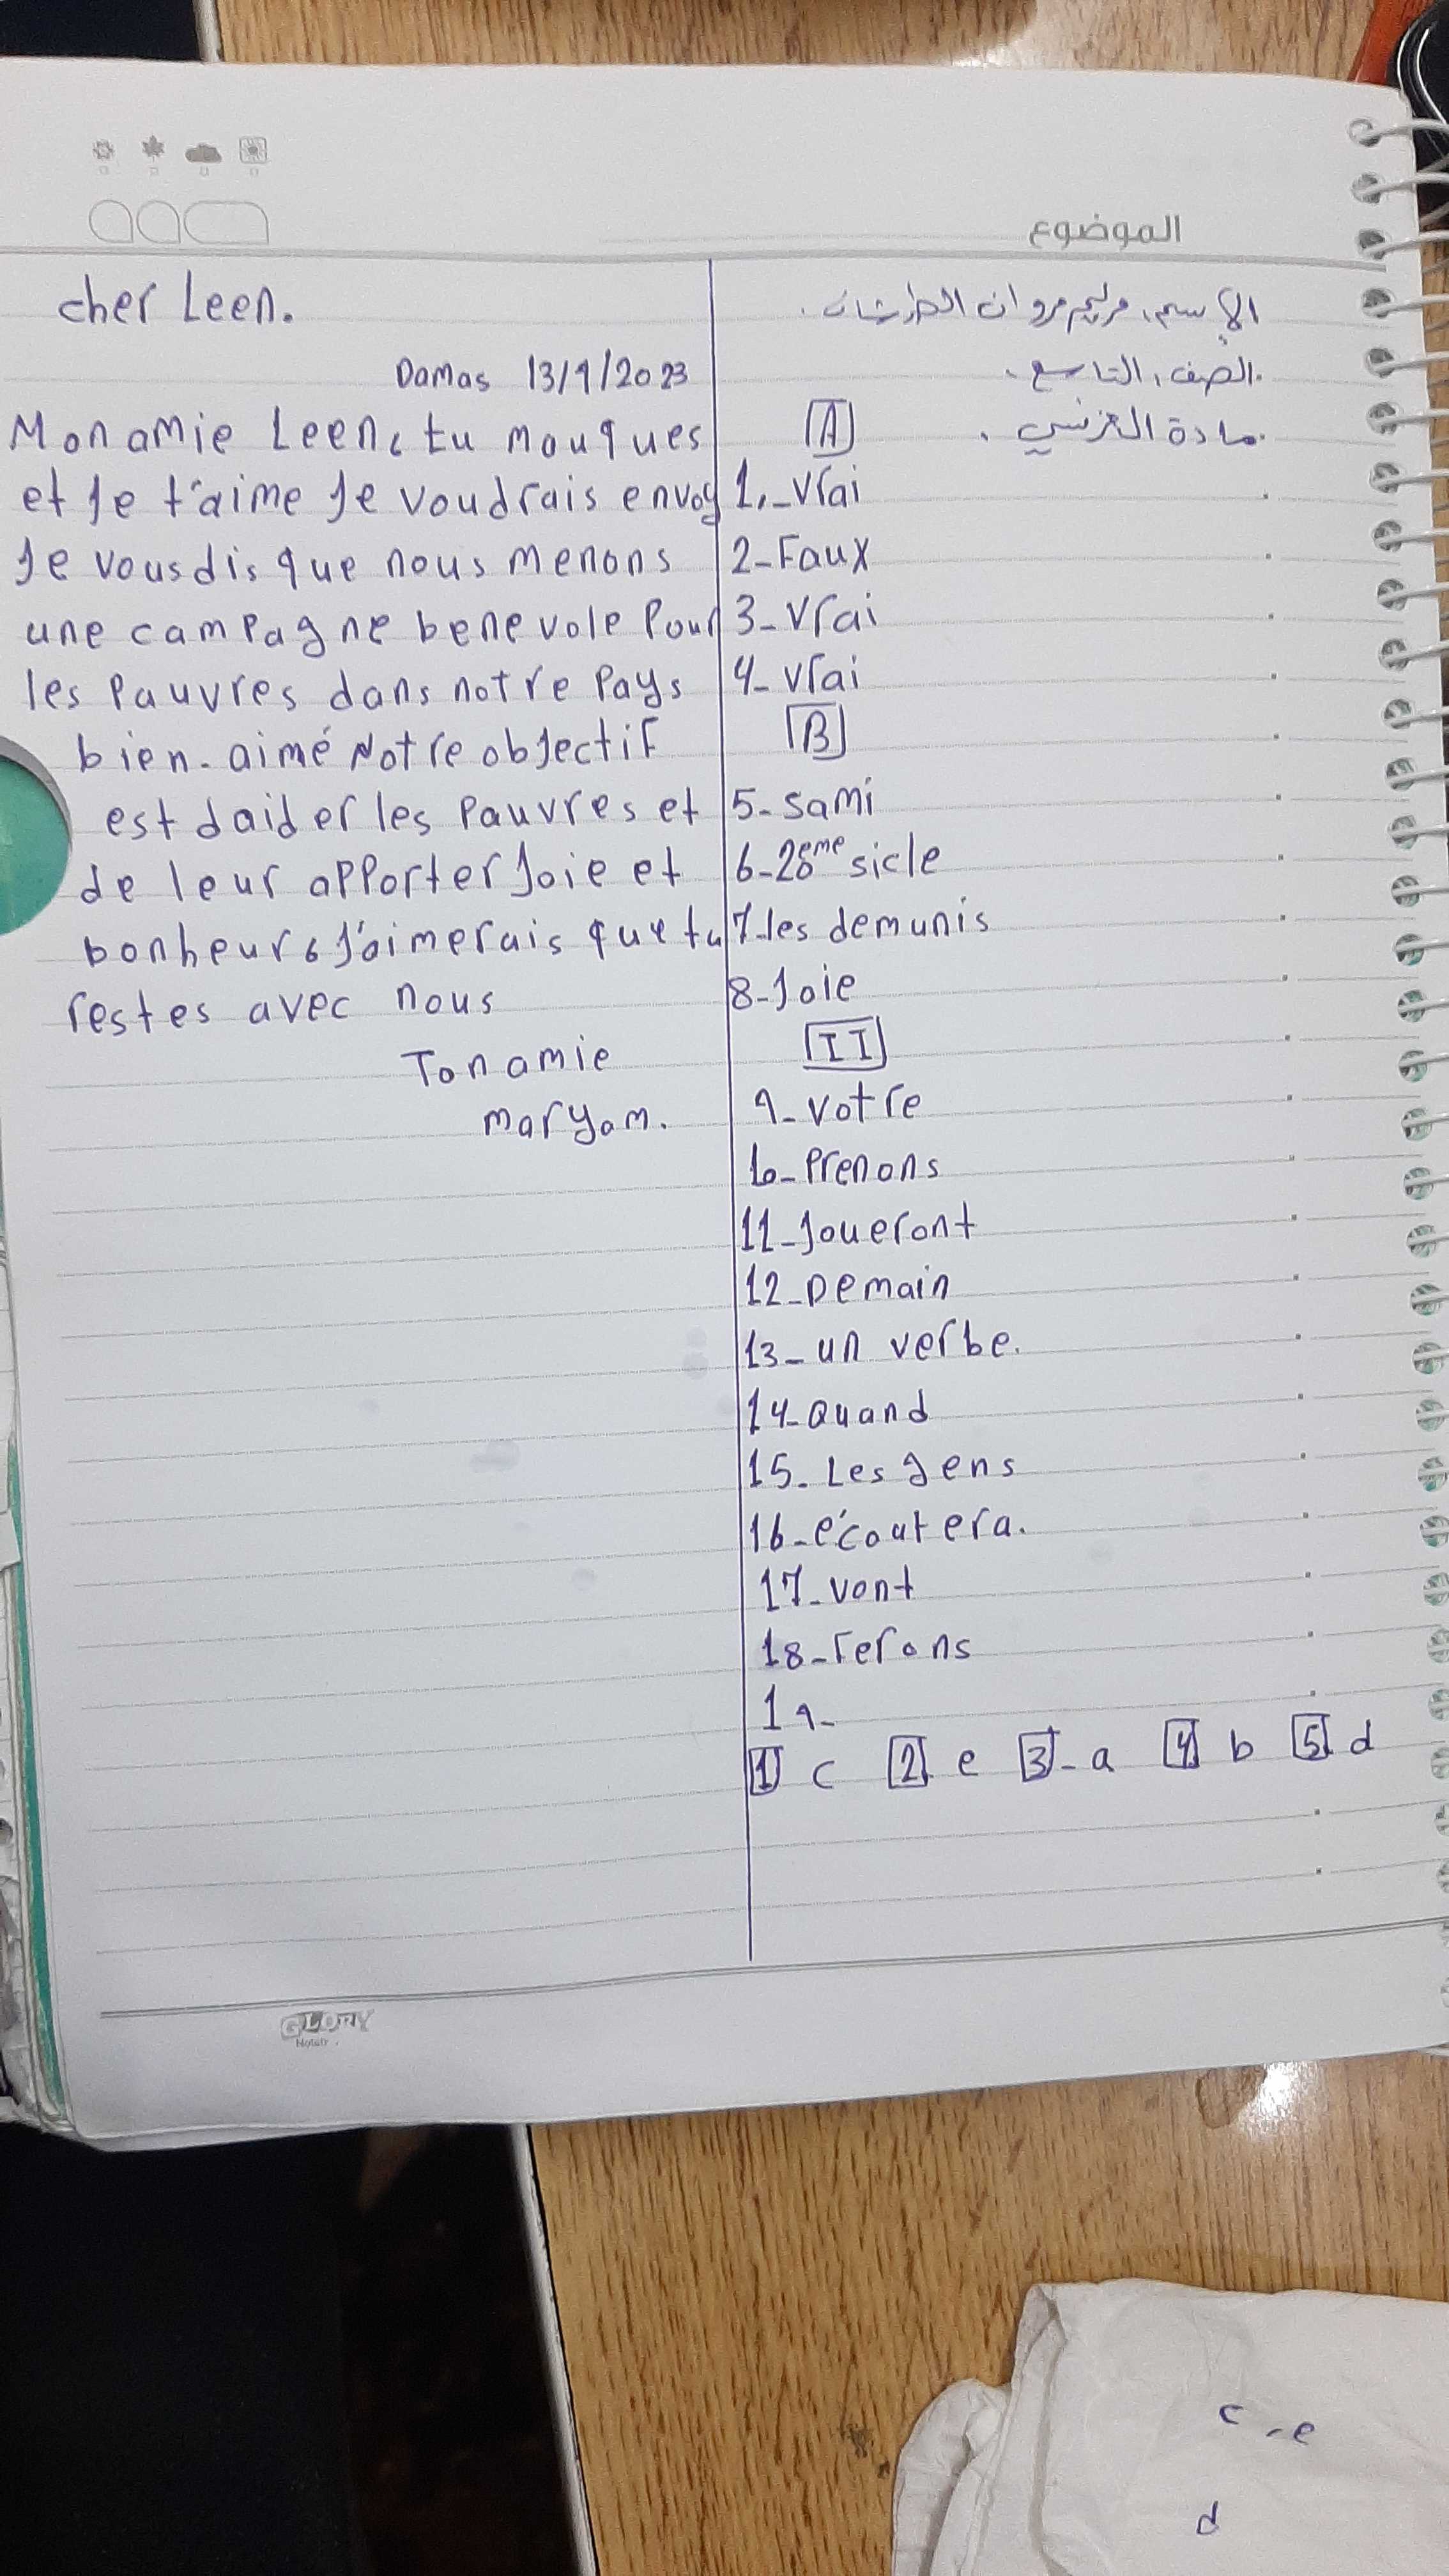 الموضوع
الإسم: مريم مروان الطرشان.
الصف: التاسع.
مادة الفرنسي.
A
1,_vrai
2_Faux
3_vrai
4_vrai
B
5_sami
6_20eme sicle
7_les demunis
8_Joie
II
9_votre
10_Prenons
11_Joueront
12_Demain
13_un verbe.
14_Quand
15_Les gens
16_écoutera.
17_vont
18_Ferons
19_
1 c 2 e 3_a 4 b 5 d
cher Leen.
Damas 13/9/2023
Mon amie Leen, tu mouques
et Je t'aime Je voudrais envoy
Je vous dis que nous menons
une campagne benevole Pour
les Pauvres dans notre Pays
bien-aimé Notre objectif
est daider les Pauvres et
de leur apporter Joie et
bonheur, J'aimerais que tu
restes avec nous
Ton amie
maryam.
GLORY
c _e
d